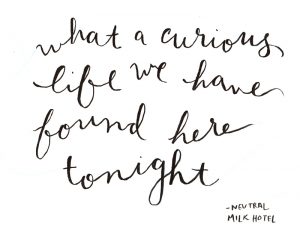 what a curious
life we have
found here
tonight
-NEUTRAL
MILK HOTEL